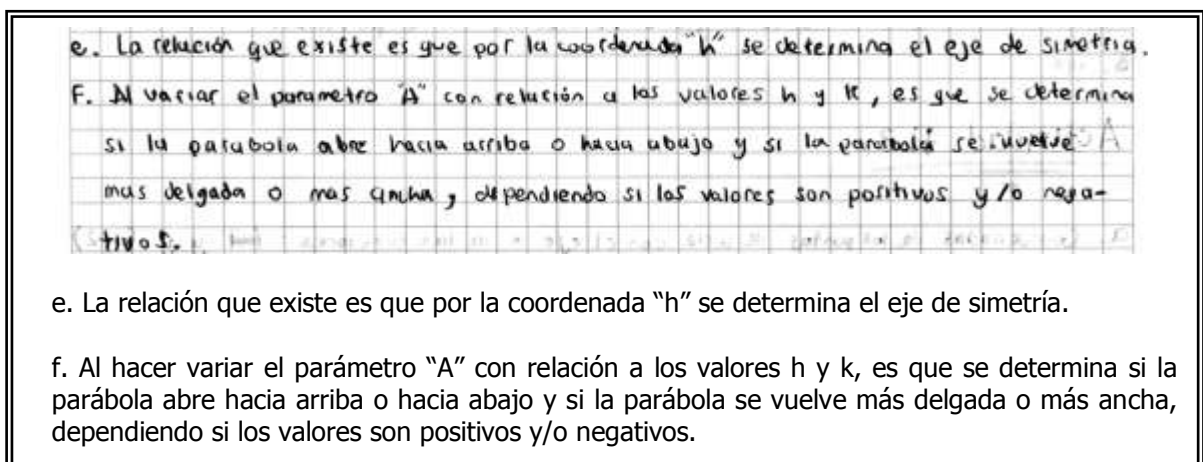 e. La relación que existe es que por la coordenada "h" se determina el eje de simetria.
F. Al variar el parametro "A" con relación a los valores h y k, es que se determina
si la parabola abre hacia arriba o hacia abajo y si la parabola se vuelve
mas delgada o mas ancha, dependiendo si los valores son positivos y/o nega-
tivos.
e. La relación que existe es que por la coordenada “h” se determina el eje de simetría.
f. Al hacer variar el parámetro “A” con relación a los valores h y k, es que se determina si la
parábola abre hacia arriba o hacia abajo y si la parábola se vuelve más delgada o más ancha,
dependiendo si los valores son positivos y/o negativos.